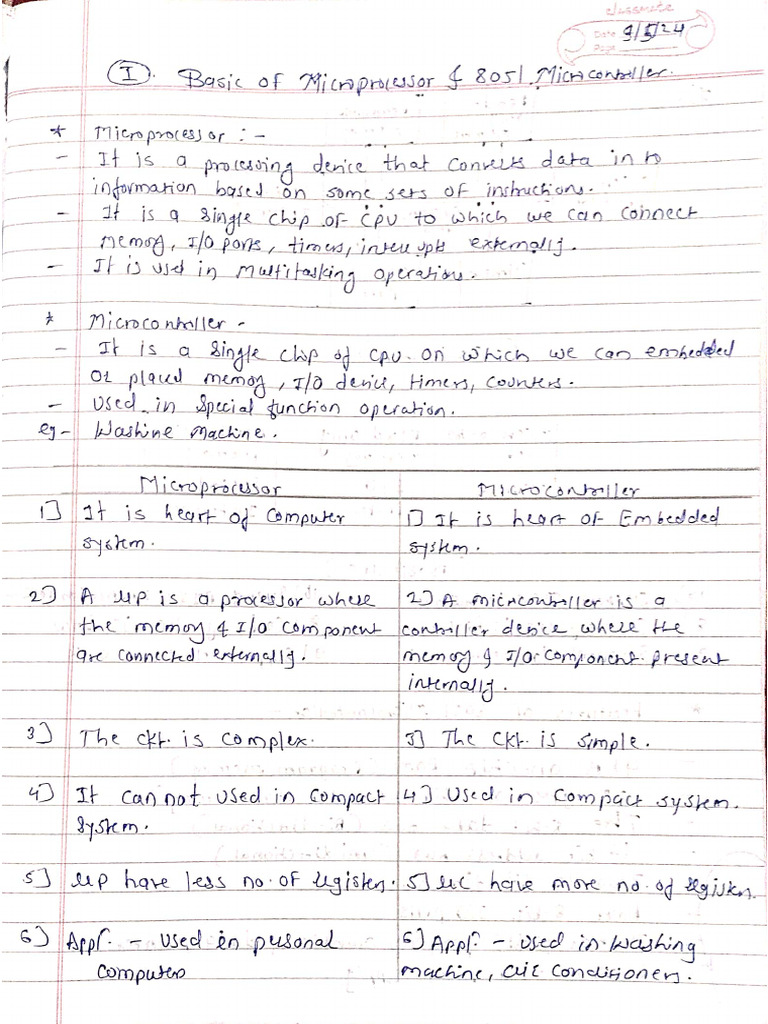 classmate
Date 9/5/24
Page
I. Basic of Microprocessor & 8051 Microcontroller.
* Microprocessor :-
- It is a processing device that converts data in to
information based on some sets of instructions.
- It is a single chip of CPU to which we can connect
memory, I/O ports, timers, interrupts externally.
- It is used in multitasking operations.
* Microcontroller -
- It is a single chip of CPU on which we can embedded
or placed memory, I/O device, timers, counters.
- Used in special function operation.
eg - Washine Machine.
Microprocessor Microcontroller
1] It is heart of computer 1] It is heart of Embedded
system. system.
2] A μP is a processor where 2] A micrcontroller is a
the memory & I/O component controller device where the
are connected externally. memory & I/O component present
internally.
3] The ckt. is complex. 3] The ckt is simple.
4] It can not used in compact 4] Used in compact system.
system.
5] μP have less no. of registers. 5] μC have more no. of registers.
6] Appl. - used in personal 6] Appl. - used in washing
computers machine, air conditioners.